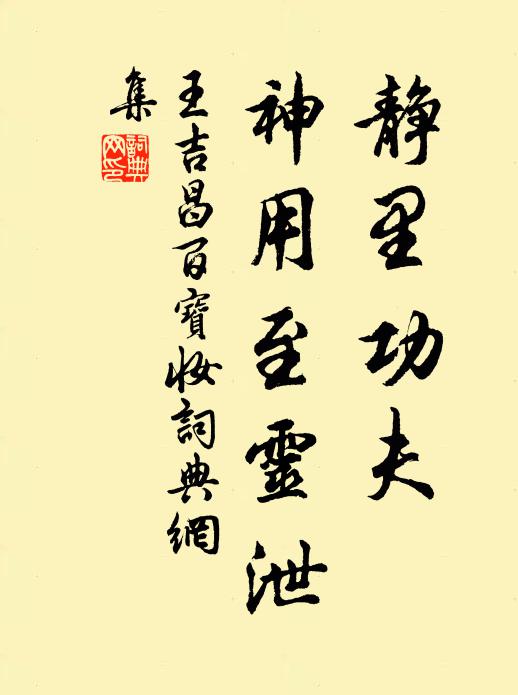 静里功夫
神用至靈泄
王吉昌百寶妝詞典網
集
詞典
网印